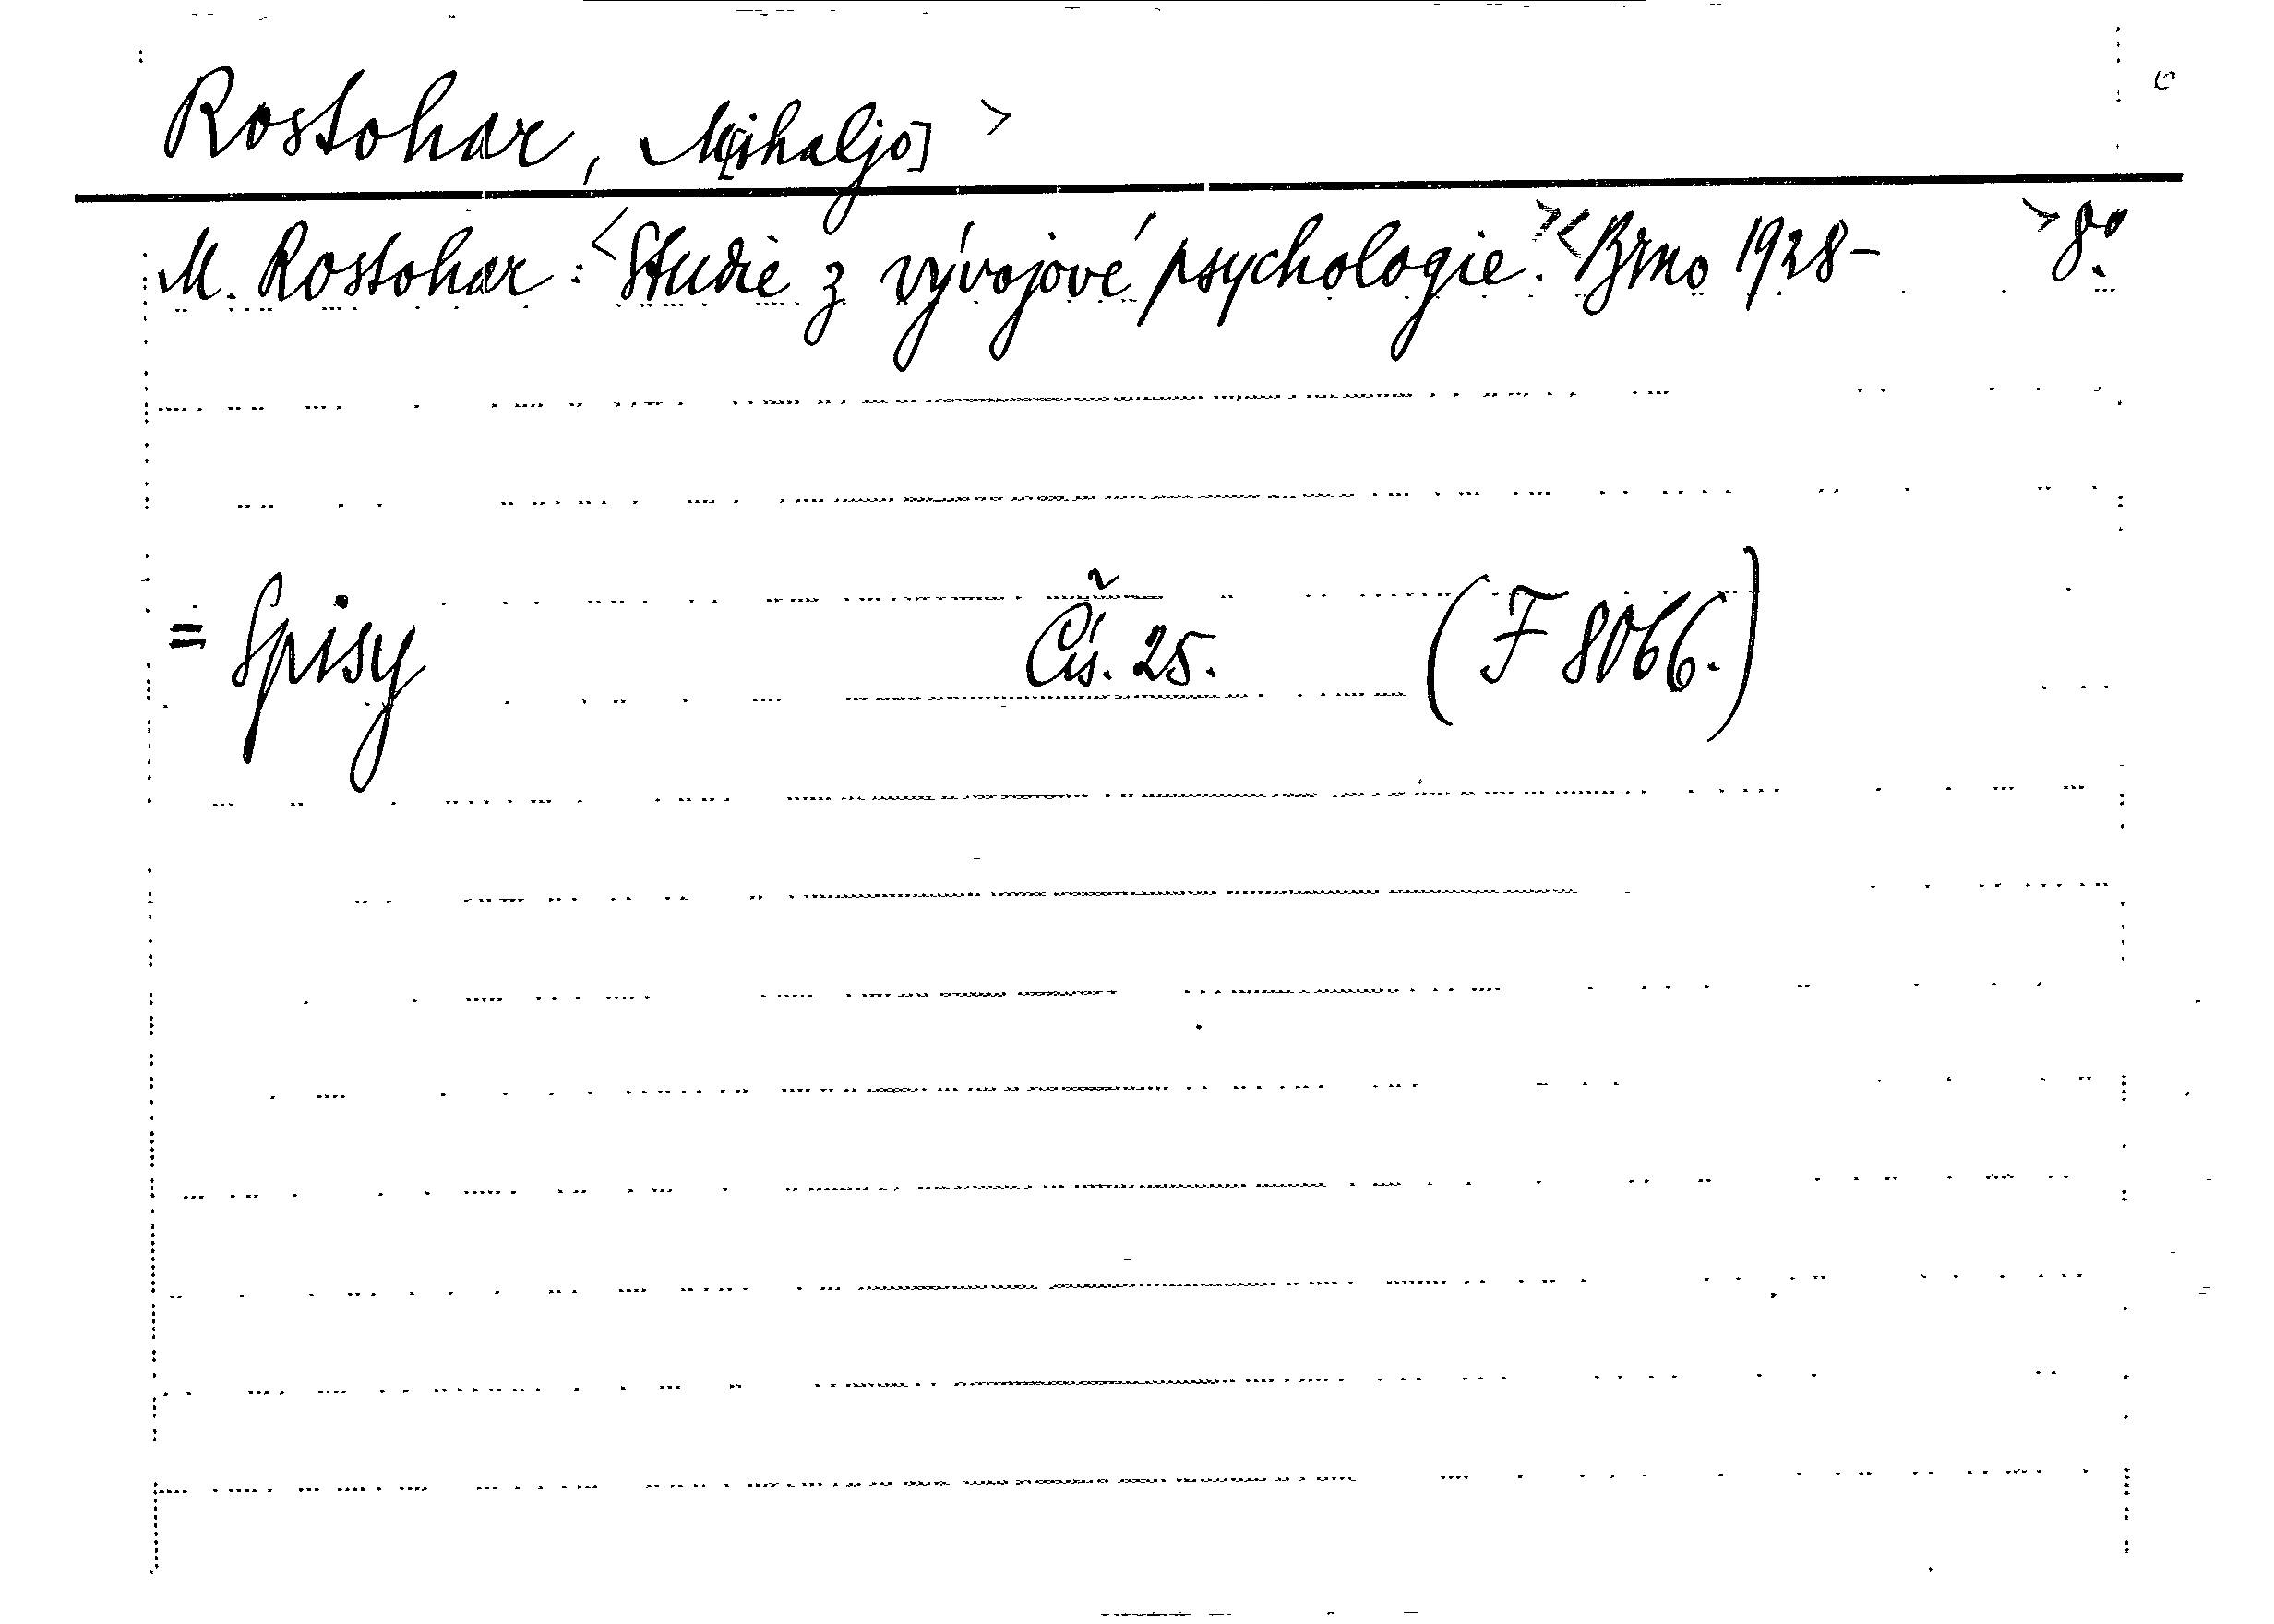 Rostohar, M[ihaljo] >
M. Rostohar: <Studie z vývojové psychologie.> <Brno 1928- > 8°.
= Spisy Čís. 25. (F 8066.)